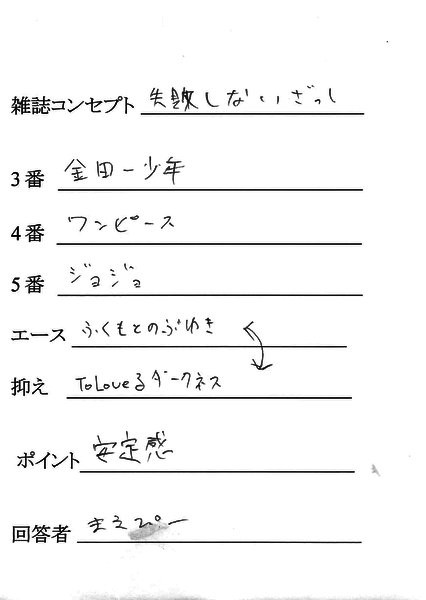 雑誌コンセプト 失敗しないざっし
3番 金田一少年
4番 ワンピース
5番 ジョジョ
エース ふくもとのぶゆき
抑え ToLoveるダークネス
ポイント 安定感
回答者 まえぴー